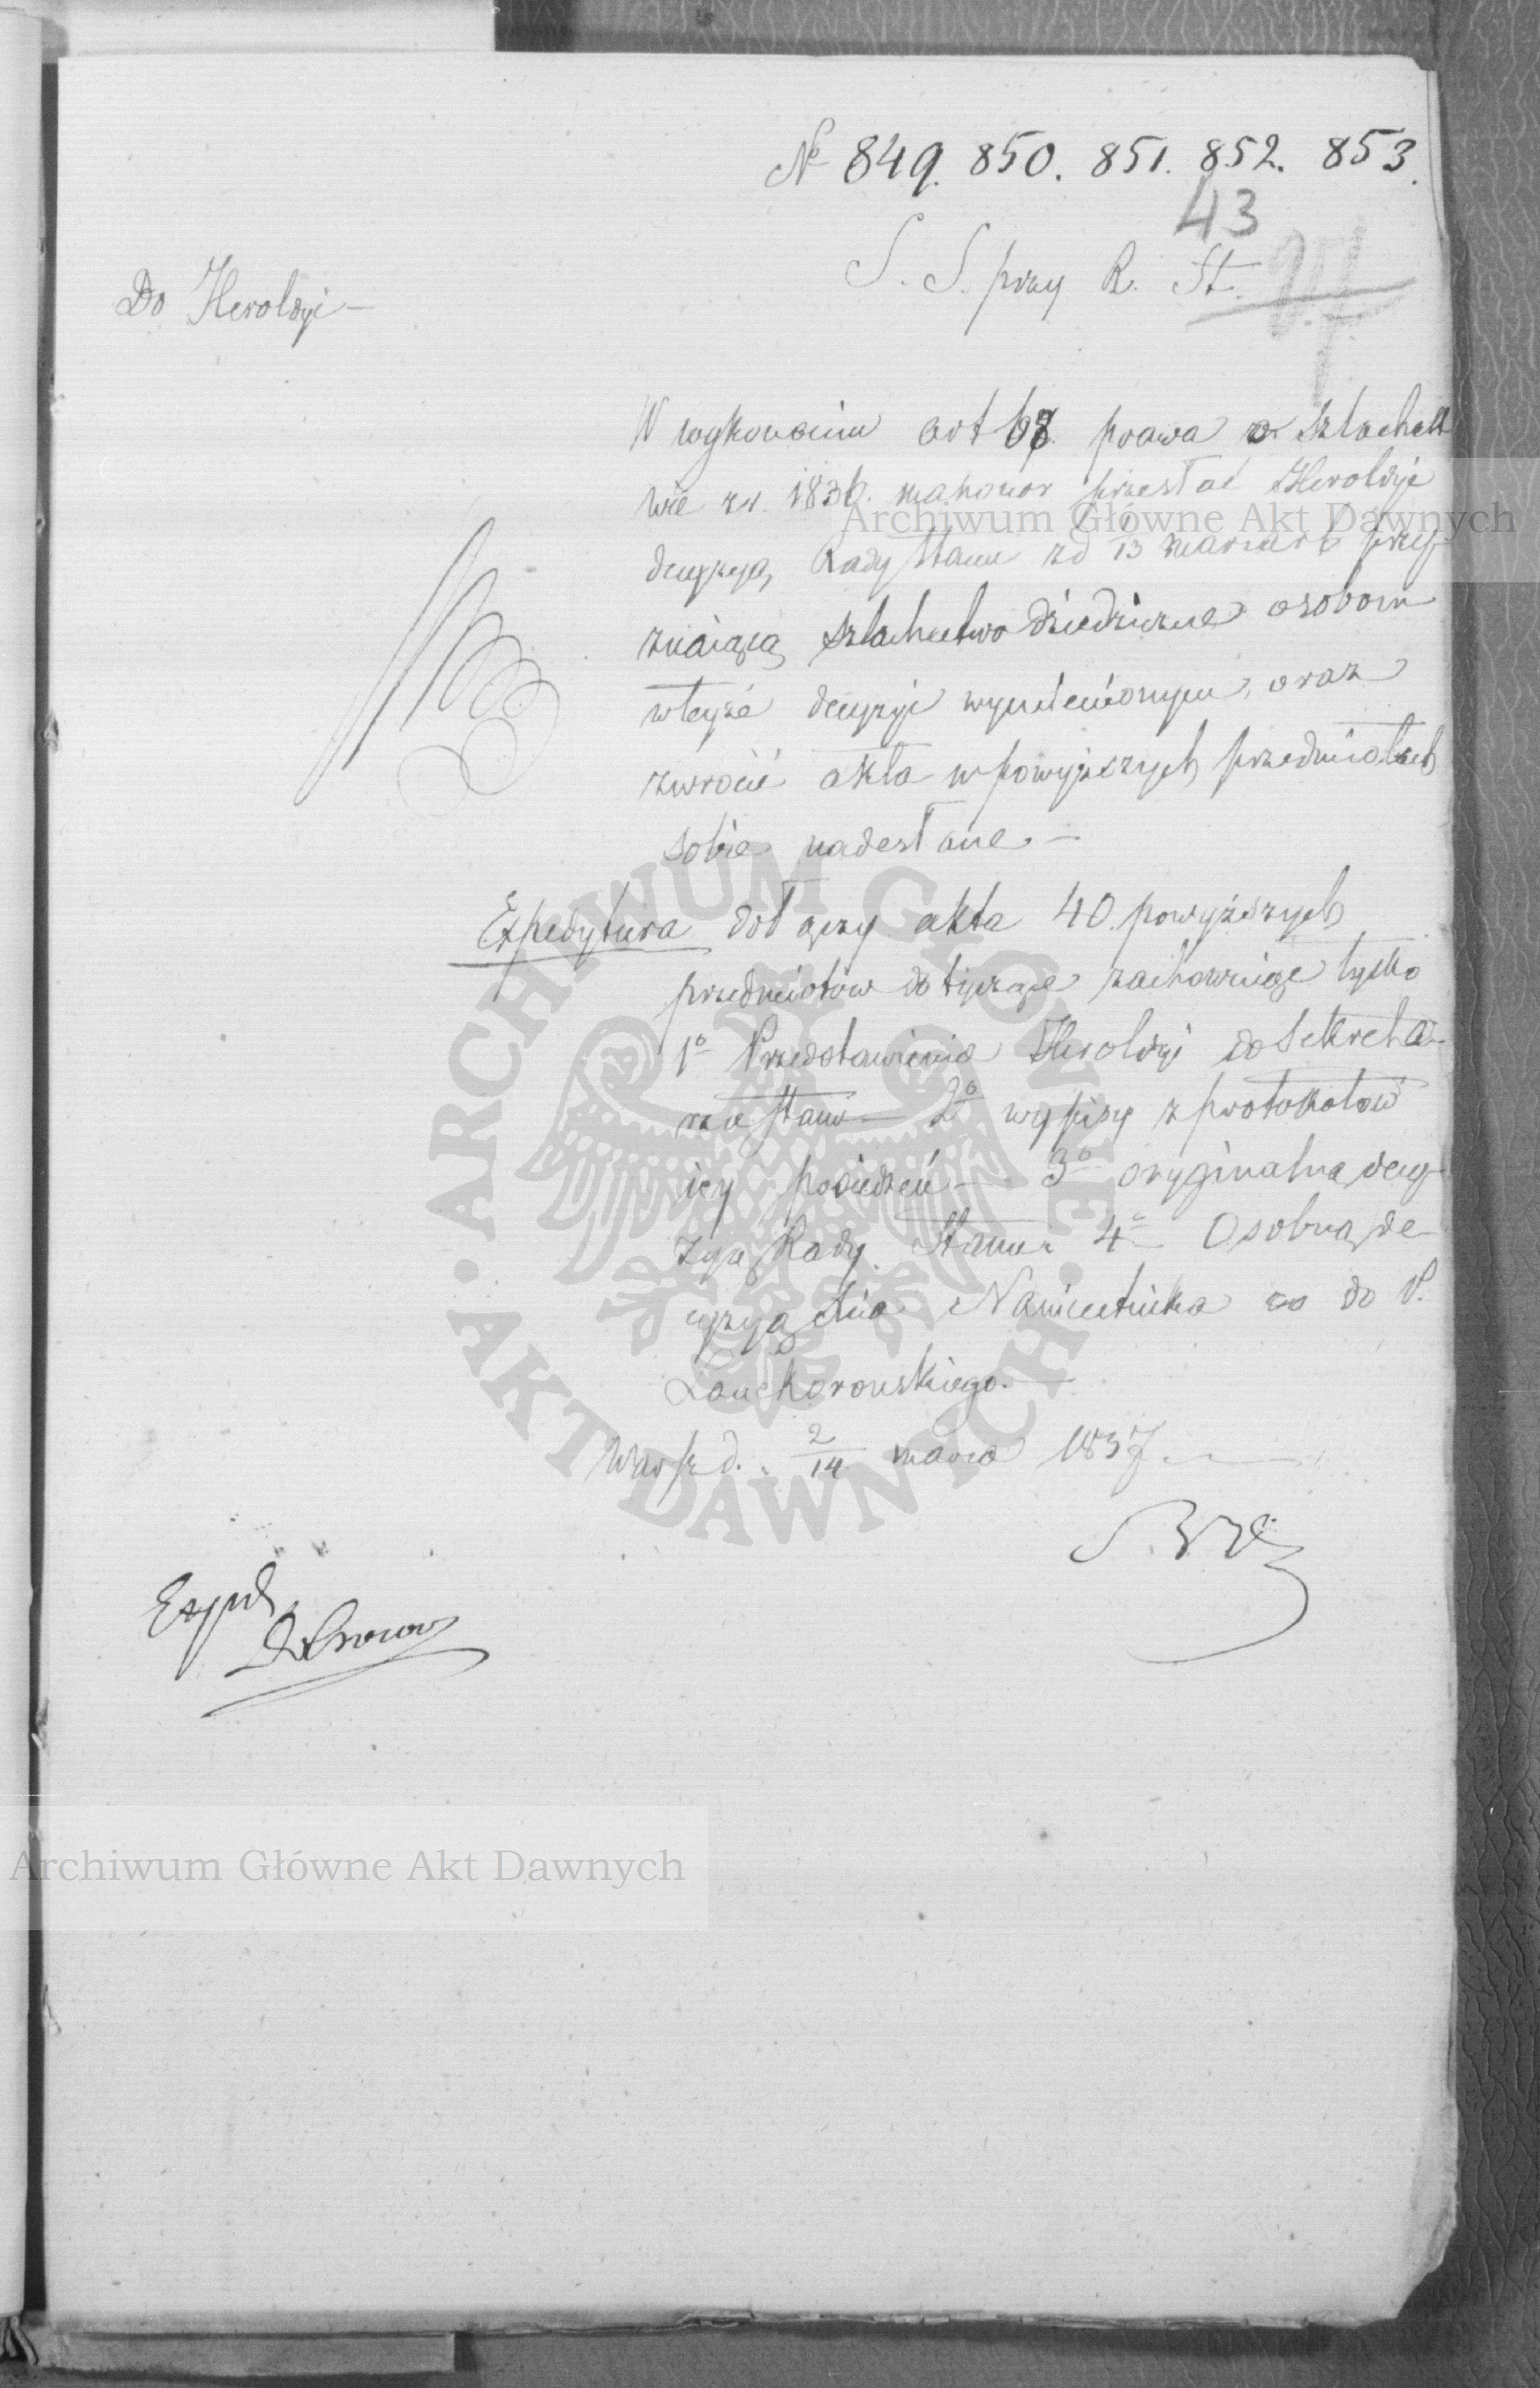 № 849. 850. 851. 852. 853.
43
S. S. przy R. St.
Do Heroldyi —
W wykonaniu art 67 prawa o szlachect
wie z r. 1836. mam honor przesłać Heroldyi
decyzyą Rady Stanu z d 1/13 marca r b przy-
znaiącą szlachectwo dziedziczne osobom
wteyże decyzyi wymienionym, oraz
zwrócić akta w powyższych przedmiotach
sobie nadesłane. —
Expedytura dołączy akta 40. powyższych
przedmiotów dotyczące zachowuiąc tylko
1º Przedstawienia Heroldyi do Sekreta-
rza Stanu — 2º wypisy z protokołów
iey posiedzeń — 3º oryginalną decy-
zyą Rady Stanu 4º Osobną de-
cyzyą Xcia Namiestnika co do P.
Lanckorońskiego. —
Warsz d. 2/14 marca 1837
Exped
Archiwum Główne Akt Dawnych
ARCHIWUM GŁÓWNE AKT DAWNYCH
Archiwum Główne Akt Dawnych